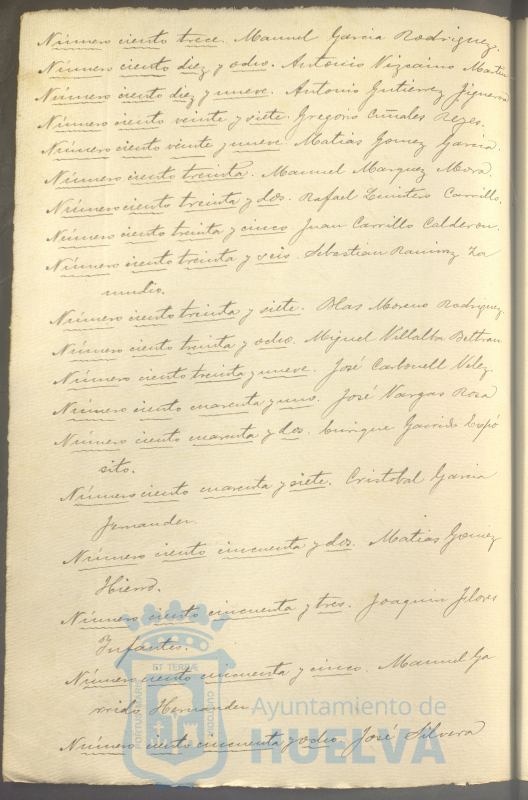 Número ciento trece. Manuel Garcia Rodriguez.
Número ciento diez y ocho. Antonio Vizcaino Martin
Número ciento diez y nueve. Antonio Gutierrez Figueroa
Número ciento veinte y siete. Gregorio Reyes.
Número ciento veinte y nueve. Matias Gomez Garcia.
Número ciento treinta. Manuel Marquez Mora.
Número ciento treinta y dos. Rafael Quintero Carrillo.
Número ciento treinta y cinco Juan Carrillo Calderon.
Número ciento treinta y seis. Sebastian Ramirez Za
mudio.
Número ciento treinta y siete. Blas Moreno Rodriguez
Número ciento treinta y ocho. Miguel Villalba Beltran
Número ciento treinta y nueve. José Carbonell Velez.
Número ciento cuarenta y uno. José Vargas Rosa
Número ciento cuarenta y dos. Enrique Garrido Espó
sito.
Número ciento cuarenta y siete. Cristobal Garcia
Fernandez.
Número ciento cincuenta y dos. Matias Gomez
Hierro.
Número ciento cincuenta y tres. Joaquin Flores
Infantes.
Número ciento cincuenta y cinco. Manuel Ga
rrido Hernandez
Número ciento cincuenta y ocho. José Silvera
Ayuntamiento de
HUELVA